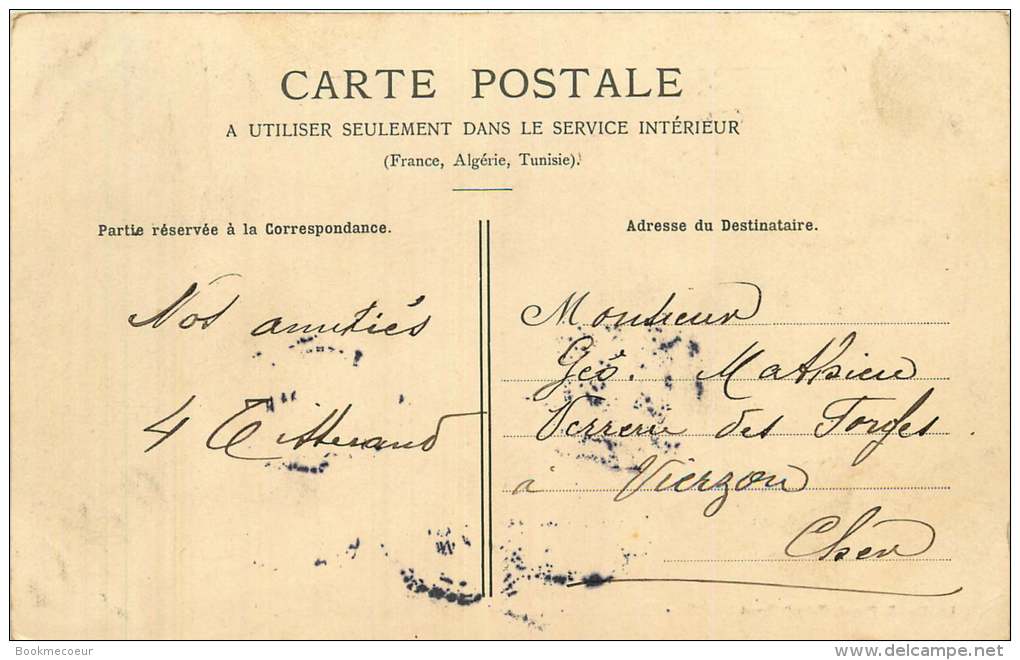 CARTE POSTALE
A UTILISER SEULEMENT DANS LE SERVICE INTÉRIEUR
(France, Algérie, Tunisie).
Partie réservée à la Correspondance.
Nos amitiés
Adresse du Destinataire.
Monsieur
Géo. Mathieu
Verrerie des Forges
à Vierzon
Cher
Bookmecoeur
www.delcampe.net